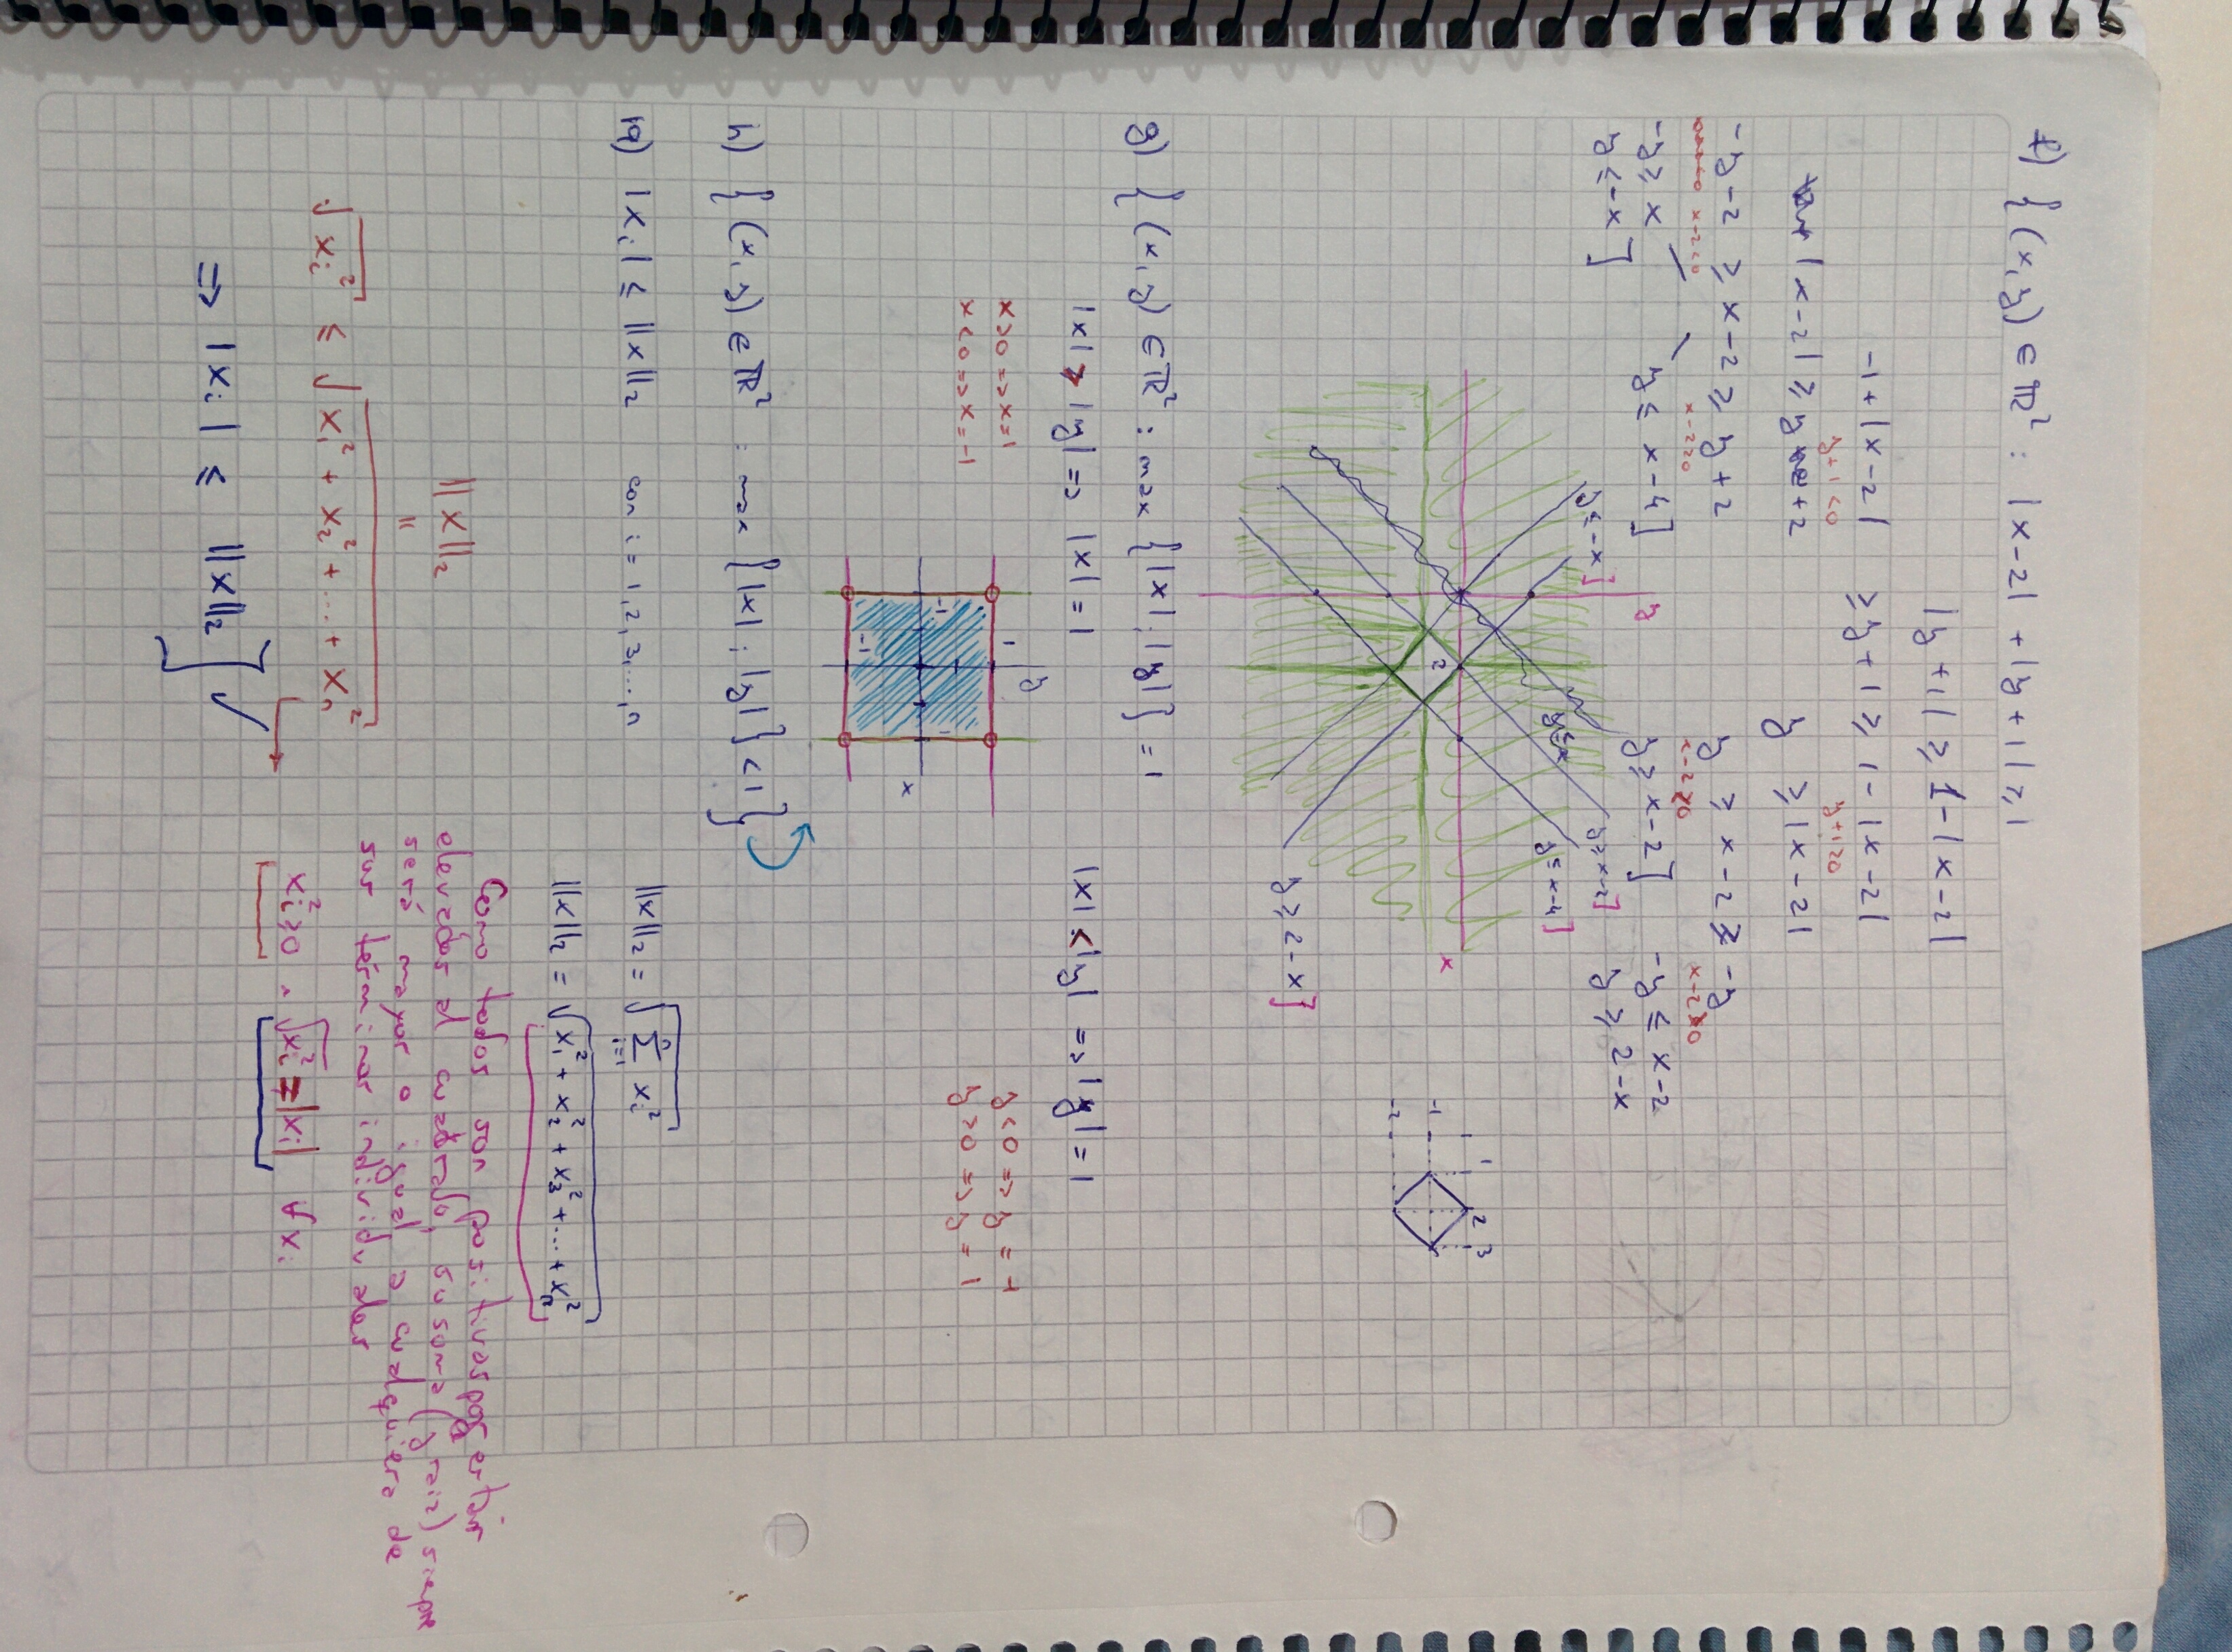 f) { (x, y) ∈ ℝ² : |x-2| + |y+1| ≥ 1
|y+1| ≥ 1-|x-2|
-1+|x-2| ≥ y+1 ≥ 1-|x-2|
y+1<0 y+1≥0
|x-2| ≥ y +2 y ≥ |x-2|
-y-2 ≥ x-2 ≥ y+2 y ≥ x-2 ≥ -y
x-2<0 x-2≥0 x-2≥0 x-2≥0
-y ≥ x y ≤ x-4] y ≥ x-2] -y ≤ x-2
y ≤ -x] y ≥ 2-x
y
y ≤ -x] y ≥ x-2]
y ≤ x y ≤ x-4]
1 2 3
x
2 -1
-2
y ≥ 2-x]
g) { (x, y) ∈ ℝ² : max {|x|; |y|} = 1
|x| > |y| => |x| = 1 |x| < |y| => |y| = 1
y
x>0 => x=1 1 y<0 => y = -1
x<0 => x=-1 y>0 => y = 1
-1 1
x
-1
h) { (x, y) ∈ ℝ² : max {|x|; |y|} < 1 }
19) |xᵢ| ≤ ||x||₂ con i = 1, 2, 3, ..., n ||x||₂ = √(∑ᵢ₌₁ⁿ xᵢ²)
||x||₂ = √(x₁² + x₂² + x₃² + ... + xₙ²)
Como todos son positivos por estar
elevados al cuadrado, su suma (y raiz) siempre
será mayor o igual a cualquiera de
sus términos individuales
||x||₂
=
√(xᵢ²) ≤ √(x₁² + x₂² + ... + xₙ²)
xᵢ² ≥ 0 ∧ √(xᵢ²) = |xᵢ| ∀ xᵢ
=> |xᵢ| ≤ ||x||₂ ] ✓